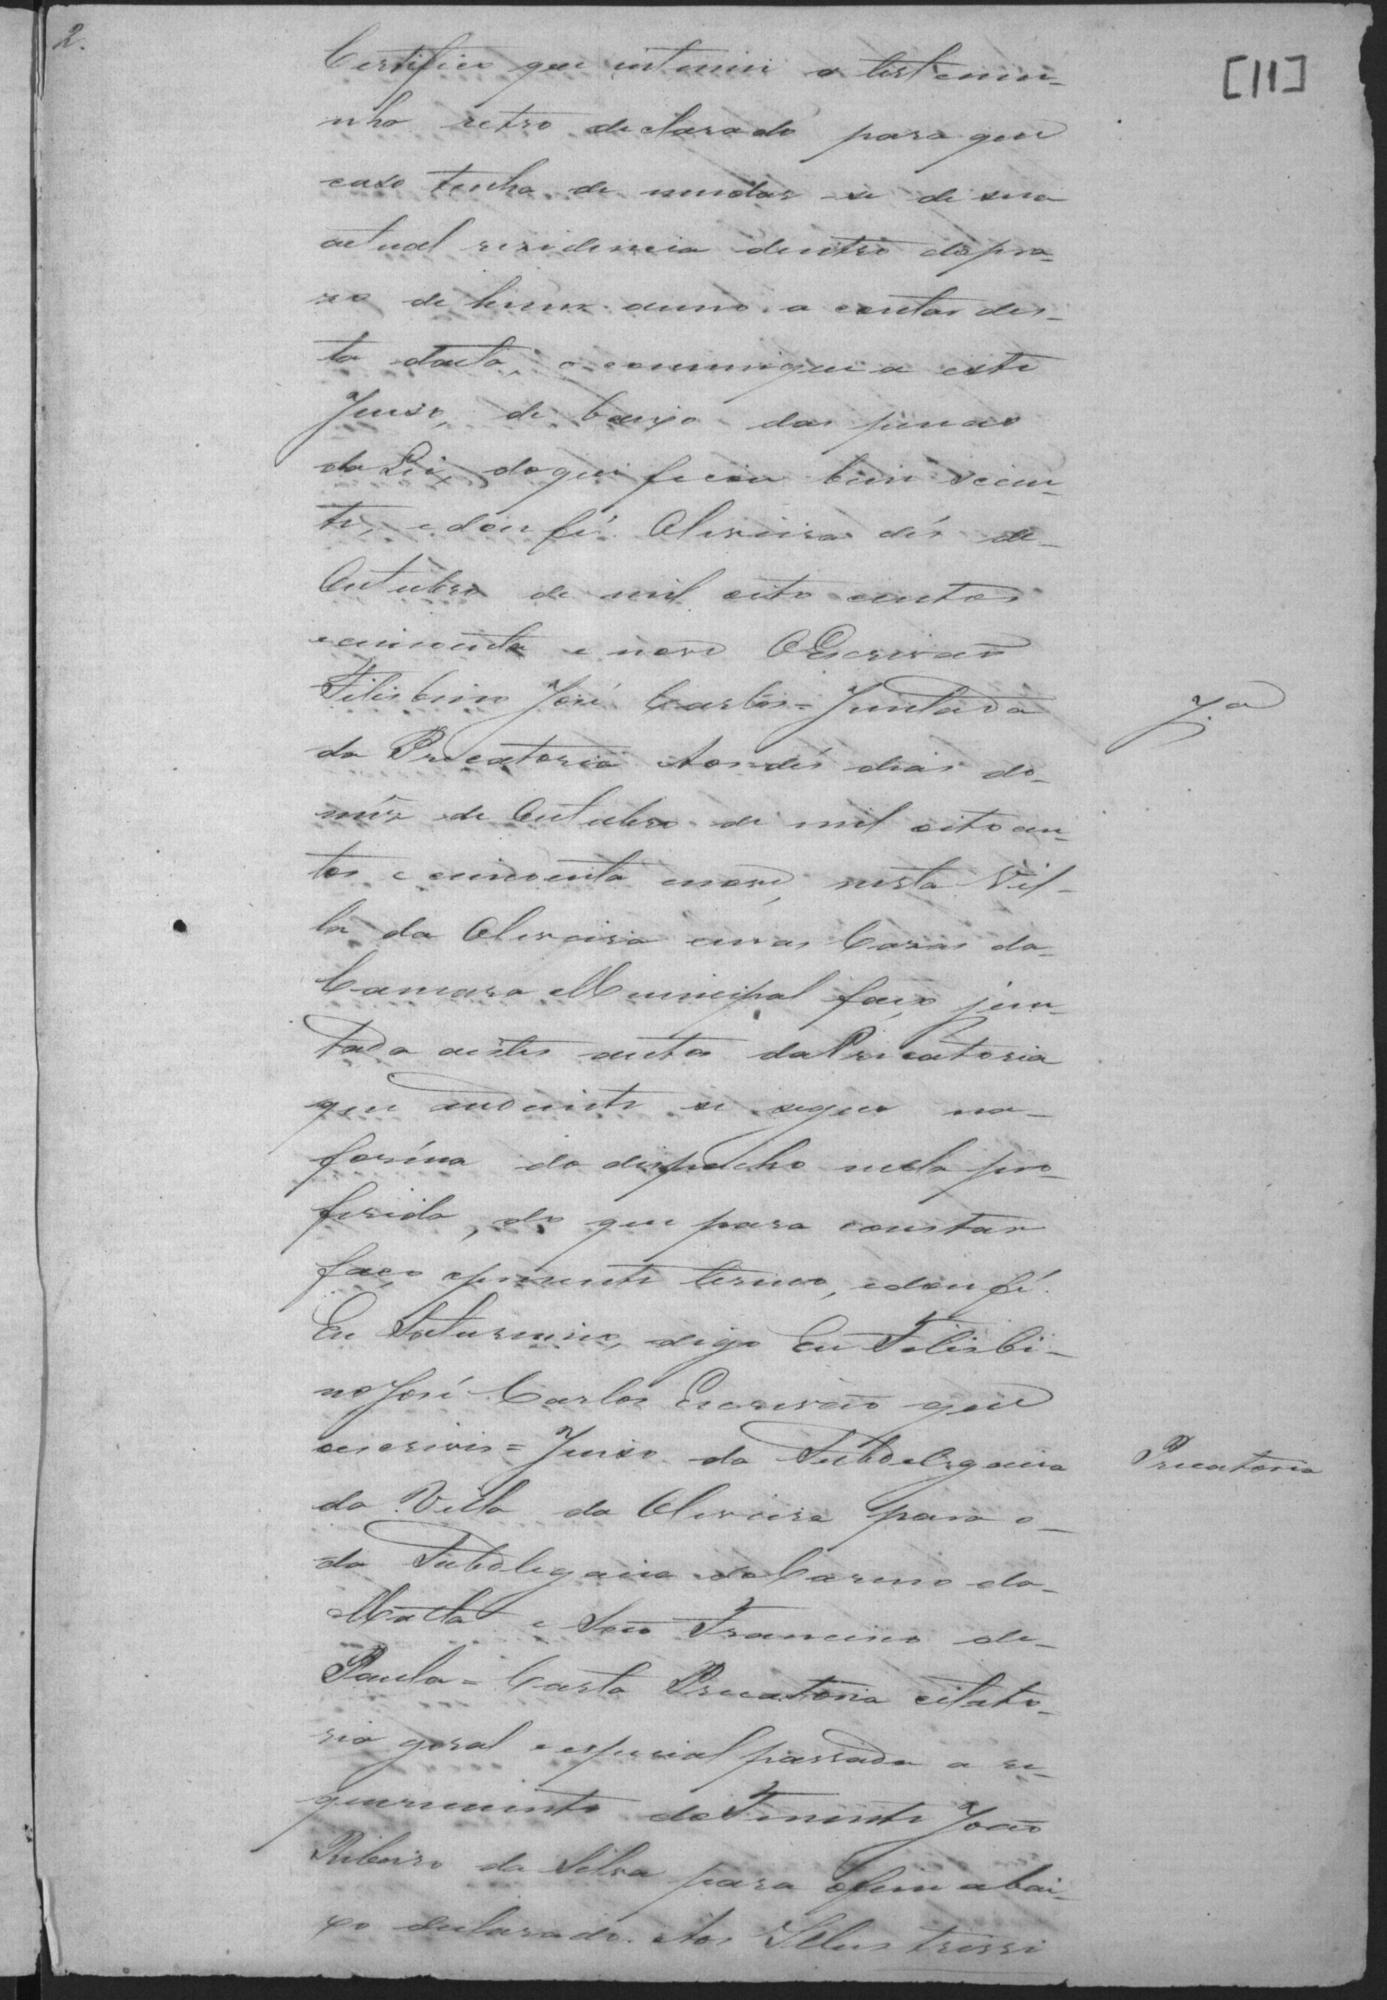 2.
[11]
Certifico que intimei a testemu-
nha retro declarado para que
caso tenha de mudar-se de sua
actual residencia dentro do pra-
so de hum anno a contar des-
ta dacta, o communique a este
Juiso, de baixo das penas
da Lei, do que ficou bem scien-
te, e dou fé. Oliveira dés de
Outubro de mil oito centos
e cincoenta e nove O Escrivão
Felisbino José Carlos = Juntada
J.a
da Precatoria Aos dés dias do
mêz de Outubro de mil oito cen-
tos e cincoenta e nove, nesta Vil-
la da Oliveira em as Casas da
Camara Municipal faço jun-
tada a estes autos da Precatoria
que adiante se segue na
forma do despacho nella pro
ferido, do que para constar
faço o presente termo, e dou fé.
Eu Saturnino, digo Eu Felisbi-
no José Carlos Escrivão que
escrevi = Juiso da Subdelegacia
Precatoria
da Villa da Oliveira para o
da Subdelegacia do Carmo da
Matta e São Francisco de
Paula = Carta Precatoria citato-
ria geral e especial passada a re-
querimento do Tenente João
Ribeiro da Silva para o fim abai-
xo declarado. Aos Illustrissi